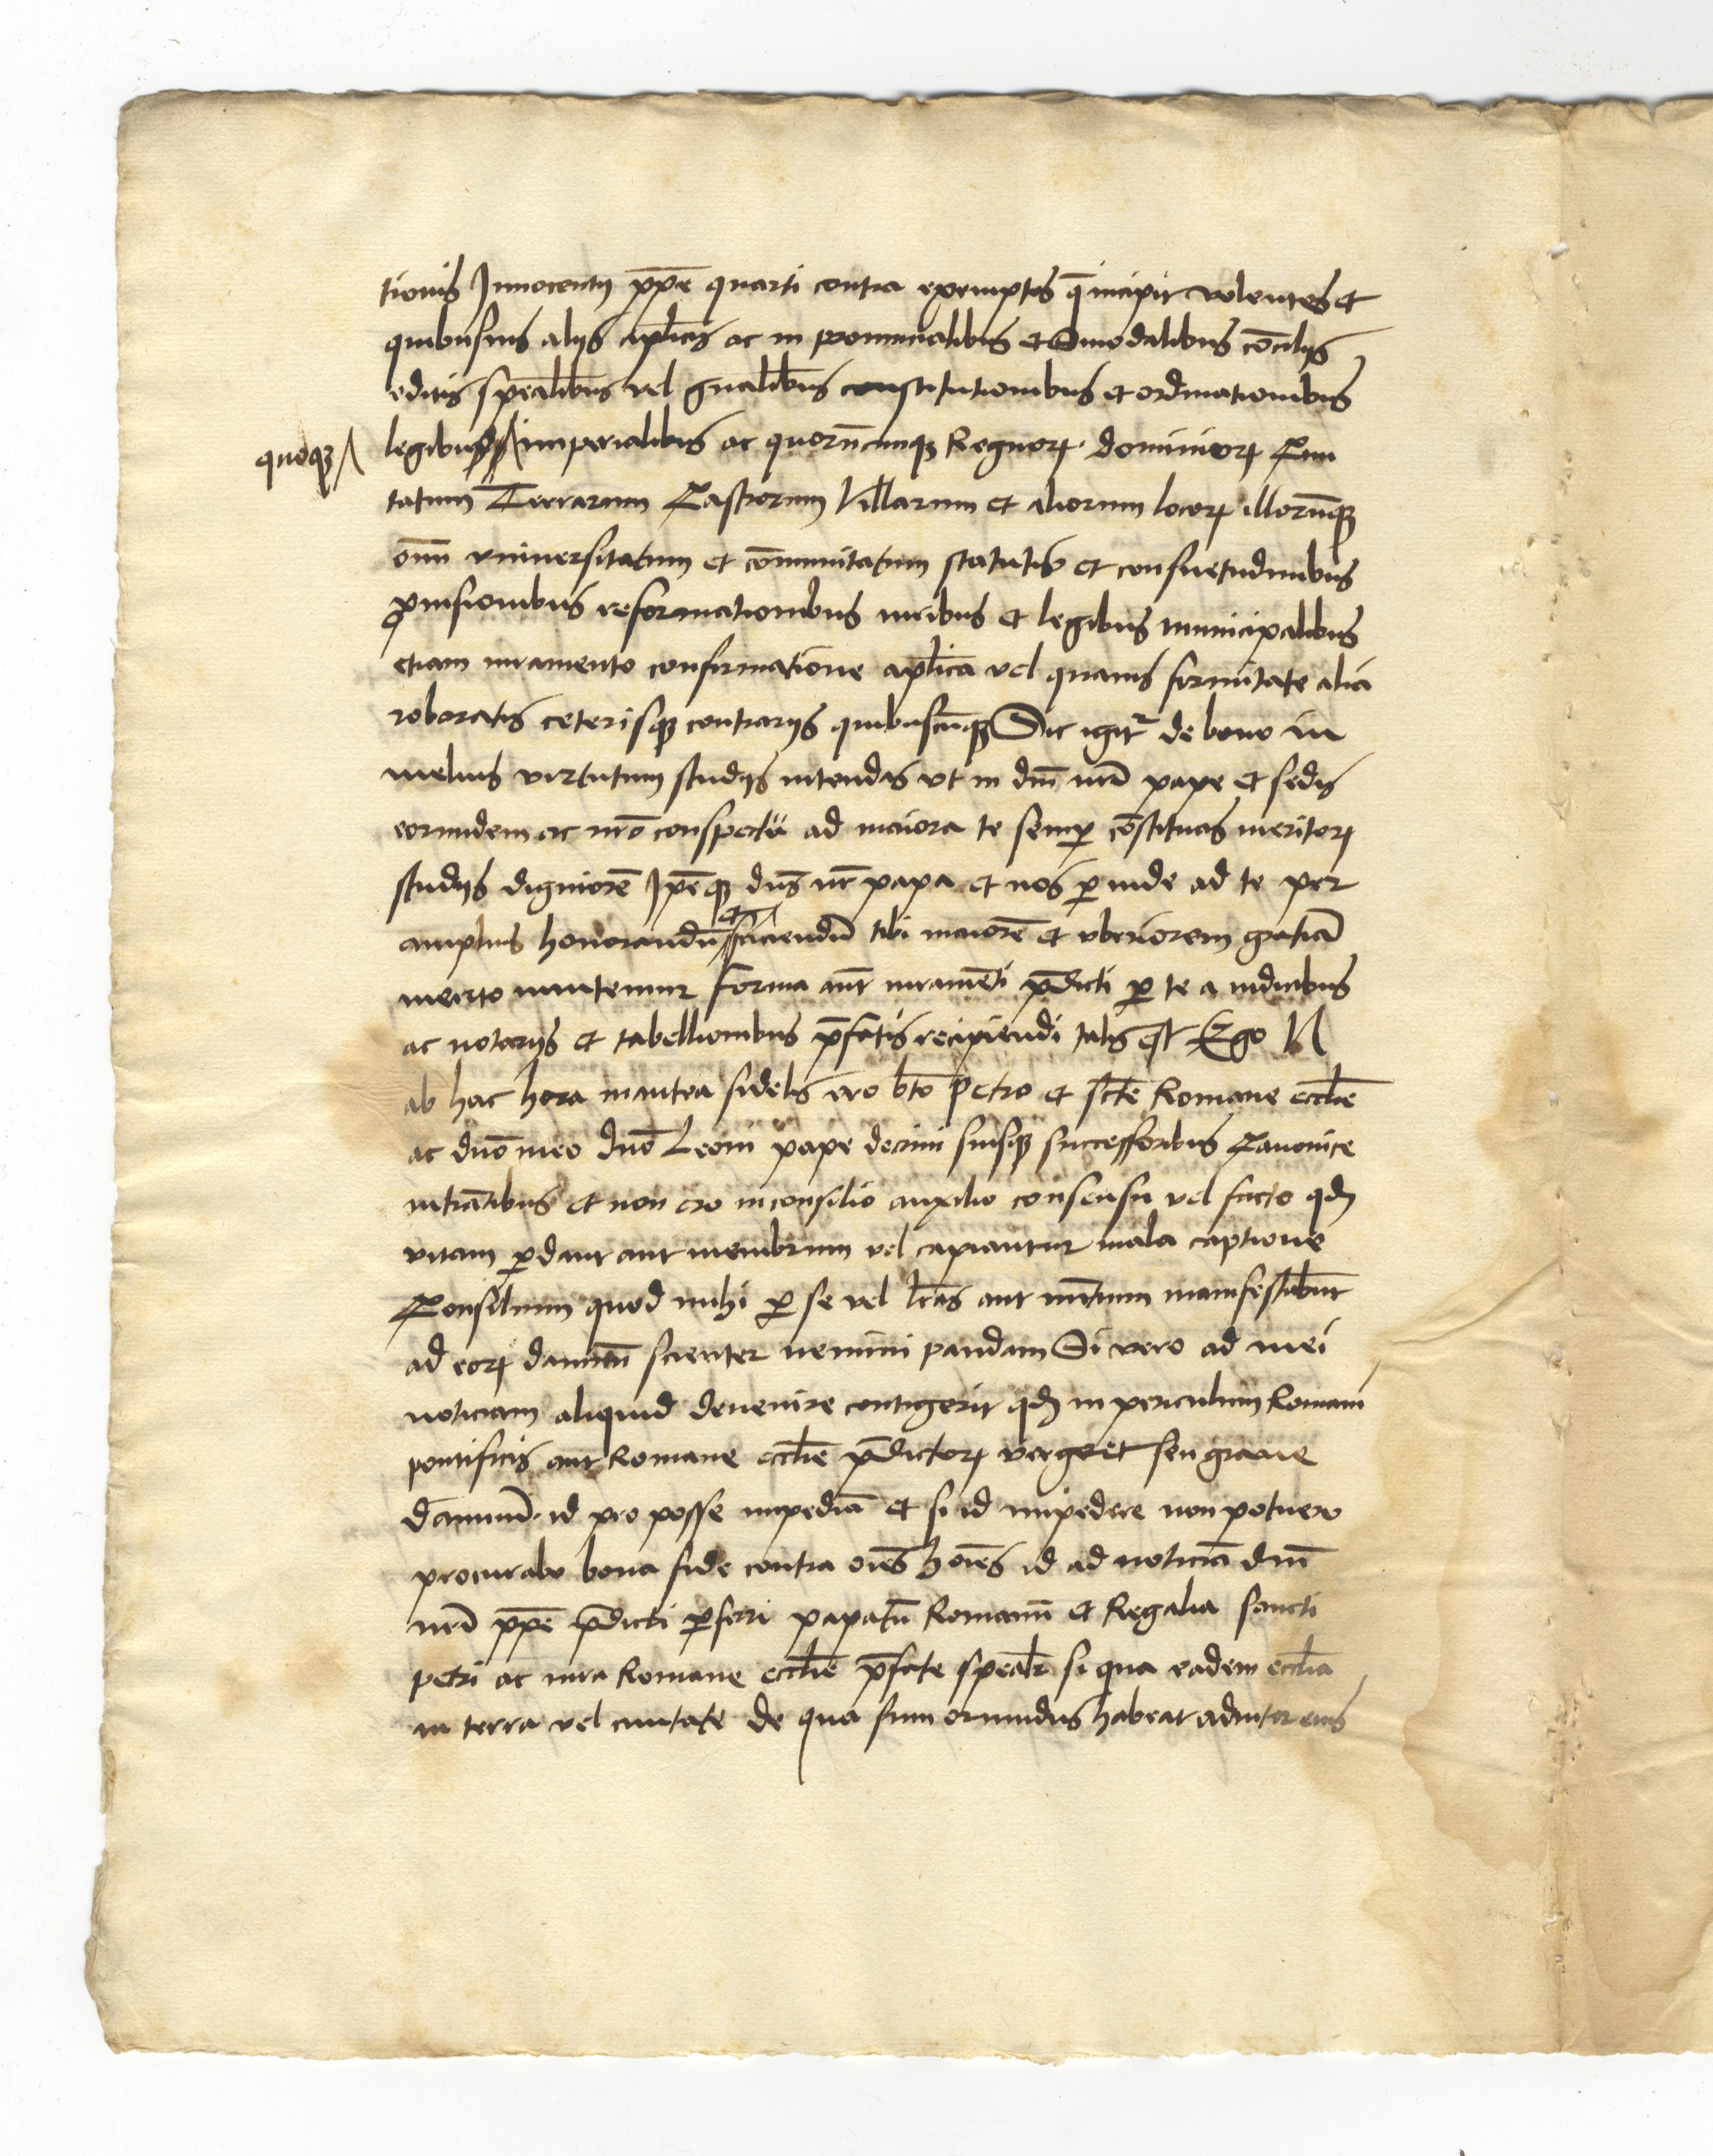 tionis Innocentij ppe quarti contra exemptos q incipit volentes et
quibusuis alijs aplicis ac in prouincialibus et Sinodalibus cocilijs
editis spealibus vel gnalibus constitutionibus et ordinationibus
quoqz legibus imperialibus ac quorucunqz Regnorꝝ dominiorꝝ Ciui
tatum Terrarum Castrorum Villarum et aliorum locorꝝ illorumqz
oim vniuersitatum et comunitatum statutis et consuetudinibus
prouisionibus reformationibus iuribus et legibus municipalibus
etiam iuramento confirmatione aplica vel quauis firmitate alia
roboratis ceterisqz contrarijs quibuscuqz Sic igit de bono in
melius virtutum studijs intendas vt in dni nri pape et sedis
eorundem ac nro conspectu ad maiora te semp costituas meritorꝝ
studijs digniore Ipeqz dns nr papa et nos pinde ad te per
amplius honorandu et faciendu tibi maiore et vberiorem gratia
merito inuitemur Forma aut iurameti pdicti p te a iudicibus
ac notarijs et tabellionibus pfatis recipiendi talis est Ego N
ab hac hora inantea fidelis ero bto Petro et scte Romane ecclie
ac dno meo dno Leoni pape decimi suisqz successoribus Canonice
intratibus et non ero in consilio auxilio consensu vel facto qd
vitam pdant aut membrum vel capiantur mala captione
Consilium quod mihi p se vel lras aut nuntium manifestabunt
ad eorꝝ damnu scienter nemini pandam Si vero ad mei
noticiam aliquid deuenire contigerit qd in periculum Romani
pontificis aut Romane ecclie pdictorꝝ vergeret seu graue
damnu id pro posse impedia et si id impedire non potuero
procurabo bona fide contra oies hoies id ad noticia dni
nri ppe pdicti pferri papatu Romanu et Regalia sancti
Petri ac iura Romane ecclie pfate spealr si qua eadem ecclia
in terra vel ciuitate de qua sum oriundus habeat adiutor eius